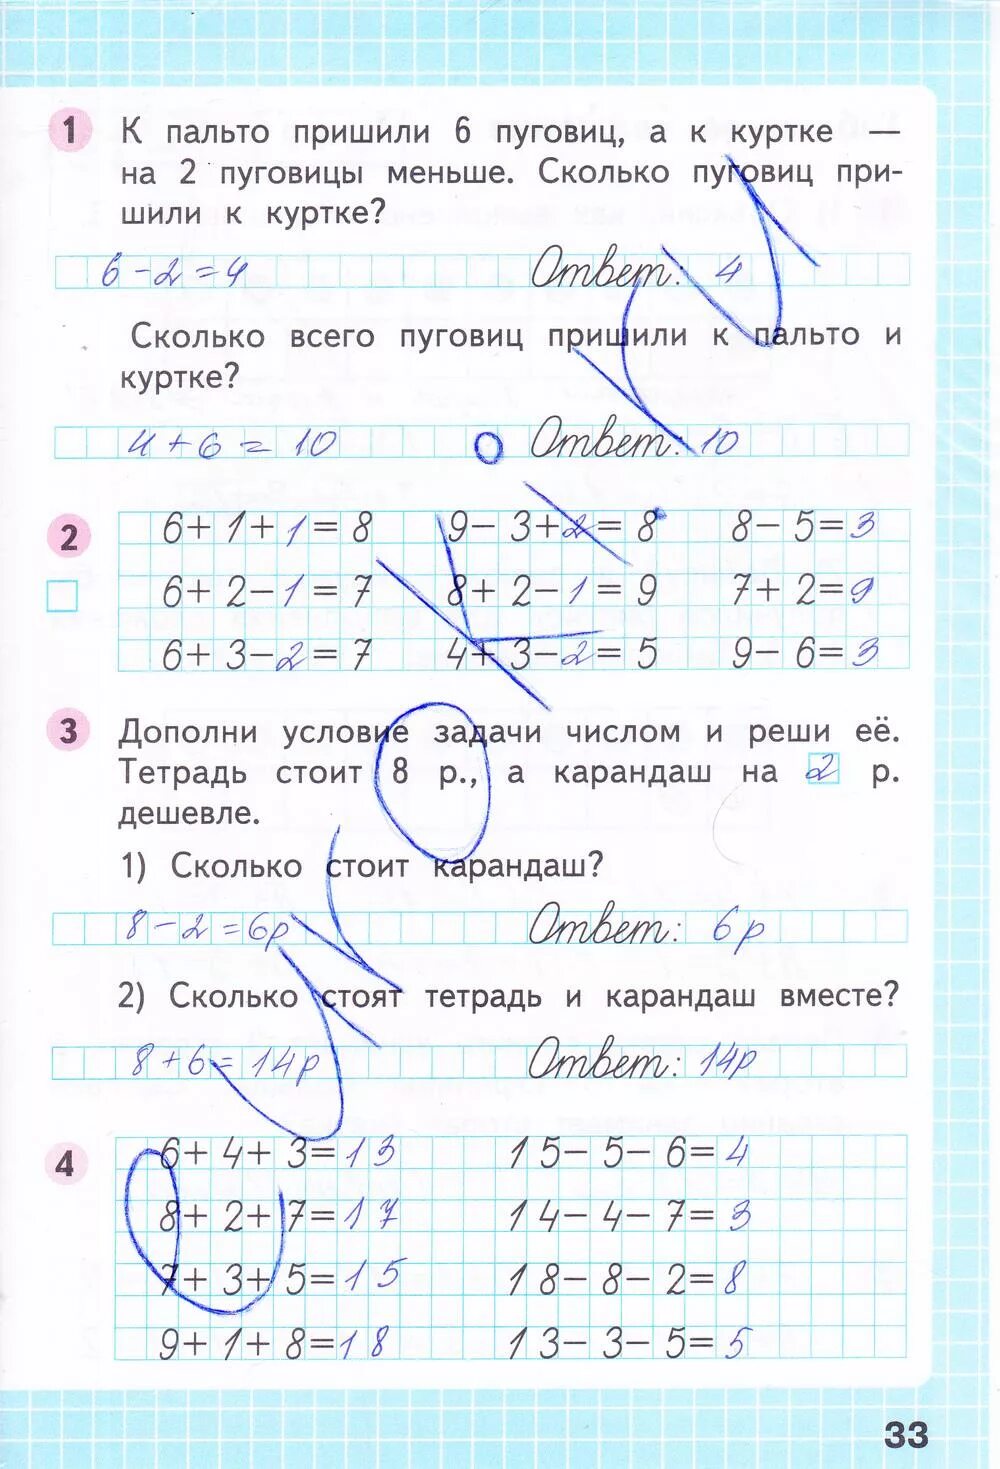 1 К пальто пришили 6 пуговиц, а к куртке —
на 2 пуговицы меньше. Сколько пуговиц при-
шили к куртке?
6-2=4 Ответ: 4
Сколько всего пуговиц пришили к пальто и
куртке?
4+6=10 Ответ: 10
2 6+1+1=8 9-3+2=8 8-5=3
6+2-1=7 8+2-1=9 7+2=9
6+3-2=7 4+3-2=5 9-6=3
3 Дополни условие задачи числом и реши её.
Тетрадь стоит 8 р., а карандаш на 2 р.
дешевле.
1) Сколько стоит карандаш?
8-2=6р Ответ: 6р
2) Сколько стоят тетрадь и карандаш вместе?
8+6=14р Ответ: 14р
4 6+4+3=13 15-5-6=4
8+2+7=17 14-4-7=3
7+3+5=15 18-8-2=8
9+1+8=18 13-3-5=5
33